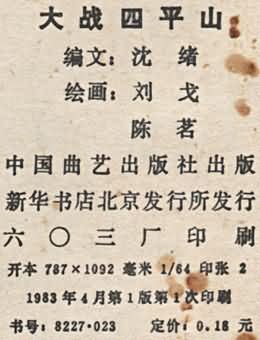 大战四平山
编文：沈 绪
绘画：刘 戈
陈 茗
中国曲艺出版社出版
新华书店北京发行所发行
六〇三厂印刷
开本 787×1092 毫米 1/64 印张 2
1983年4月第1版第1次印刷
书号：8227·023 定价：0.18 元